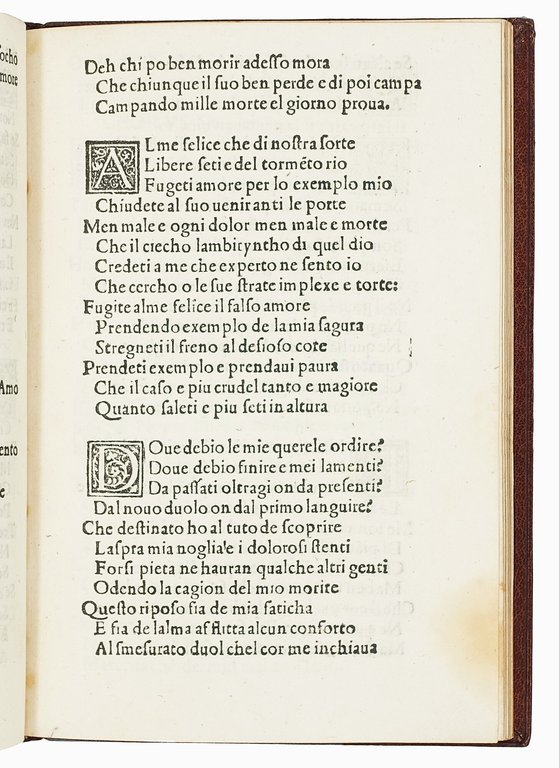 ocho
more
Amo
ento
e
Deh chi po ben morir adesso mora
Che chiunque il suo ben perde e di poi campa
Campando mille morte el giorno proua.
ALme felice che di nostra sorte
Libere seti e del tormẽto rio
Fugeti amore per lo exemplo mio
Chiudete al suo uenir anti le porte
Men male e ogni dolor men male e morte
Che il ciecho lambiryntho di quel dio
Credeti a me che experto ne sento io
Che cercho o le sue strate implexe e torte:
Fugite alme felice il falso amore
Prendendo exemplo de la mia sagura
Stregneti il freno al desioso core
Prendeti exemplo e prendaui paura
Che il caso e piu crudel tanto e magiore
Quanto saleti e piu seti in altura
DOue debio le mie querele ordire?
Doue debio finire e mei lamenti?
Da passati oltragi on da presenti?
Dal nouo duolo on dal primo languire?
Che destinato ho al tuto de scoprire
Laspra mia noglia e i dolorosi stenti
Forsi pieta ne hauran qualche altri genti
Odendo la cagion del mio morire
Questo riposo fia de mia faticha
E fia de lalma afflitta alcun conforto
Al smesurato duol chel cor me inchiaua